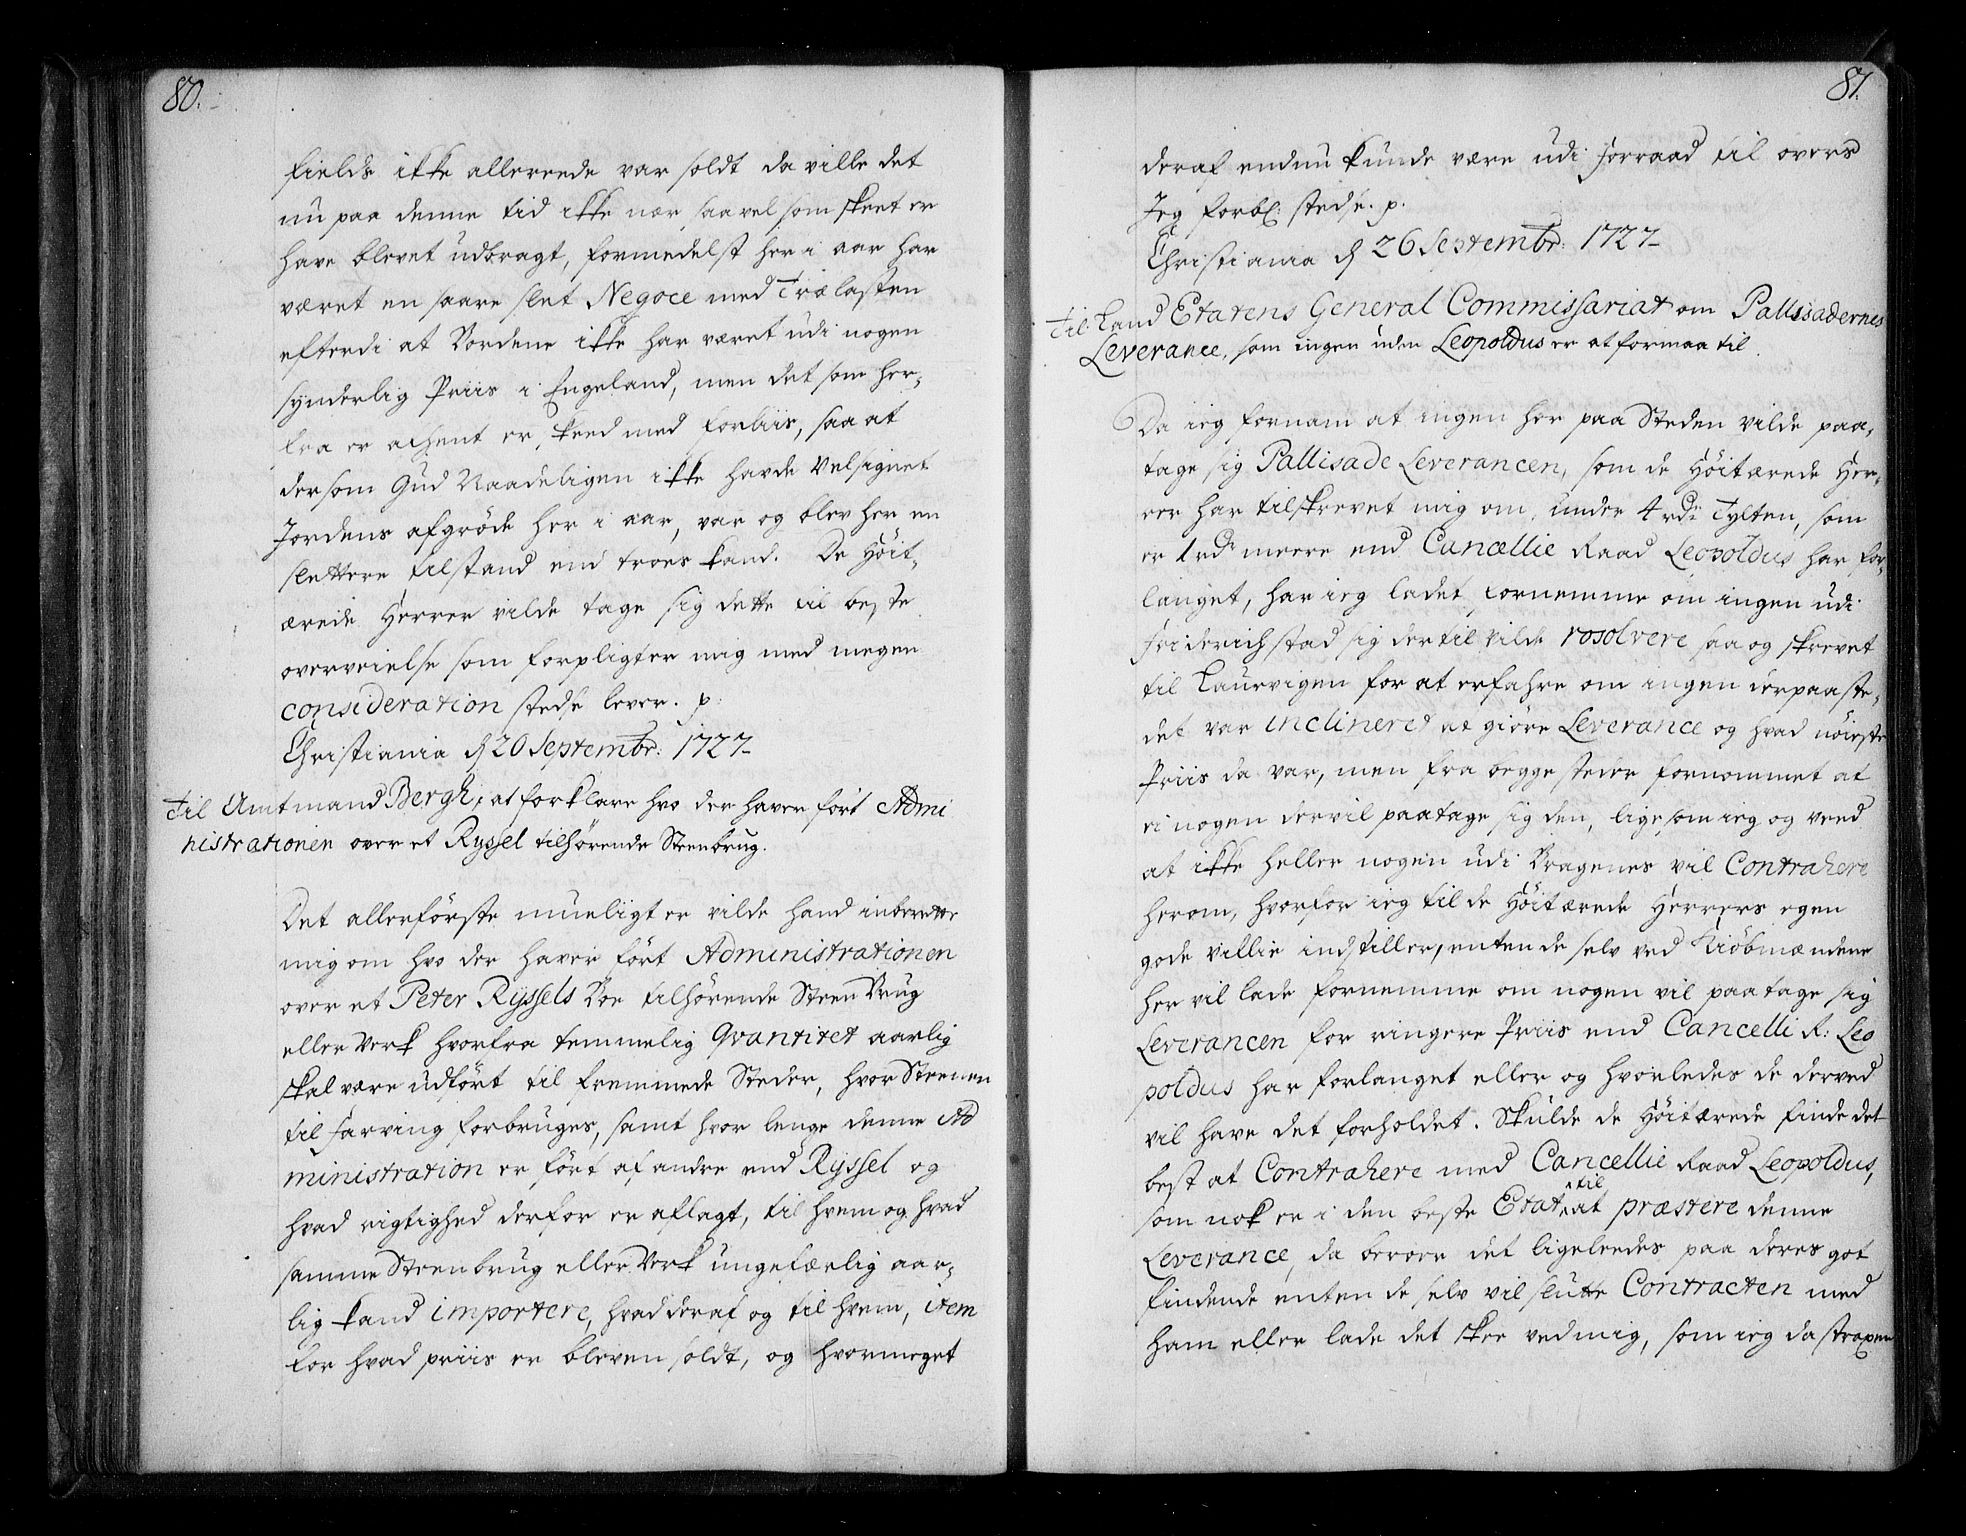 80.
fields ikke allereede var soldt da ville det
nu paa denne tid ikke nær saavel som skeet er
have blevet udbragt, formedelst her i aar har
været en saare slet Negoce med Trælasten
efterdi at Bordene ikke har været udi nogen
synderlig Priis i Engeland, men det som her-
fra er afhent er skeed med forliis, saa at
dersom Gud Naadeligen ikke hafde Velsignet
Jordens afgröde her i aar, var og blev her en
slettere tilstand end troes kand. De Höit-
ærede Herrer vilde tage sig dette til beste
overveielse som forpligter mig med megen
consideration stedse lever. p.
Christiania d 20 Septembr: 1727-
Til Amtmand Bergh, at forklare hvo der haver fört Admi
nistrationen over et Ryssel tilhörende Steenbrug.
Det allerförste mueligt er vilde hand inberette
mig om hvo der haver fört Administrationen
over et Peter Ryssels Boe tilhörende Steen Brug
eller Verk hvorfra temmelig Qvantitet aarlig
skal være udfört til fremmede Steder, hvor Steenen
til farving forbruges, samt hvor lenge denne Ad
ministration er fört af andre end Ryssel og
hvad rigtighed derfor er aflagt, til hvem og hvad
samme Steenbrug eller Verk ungefærlig aar-
lig kand importere, hvad deraf og til hvem, item
for hvad priis er bleven soldt, og hvormeget
81.
deraf endnu kunde være udi forraad til overs
Jeg forbl: stedse. p.
Christiania d 26 Septembr: 1727-
Til Land Etatens General Commissariat om Pallisadernes
Leverance, som ingen uden Leopoldus er at formaa til.
Da ieg fornam at ingen her paa Steden vilde paa-
tage sig Pallisade Leverancen, som de Höitærede Her-
rer har tilskrevet mig om, under 4 rdr Tylten, som
er 1 rdr meere end Cancellie Raad Leopoldus har for-
langet, har ieg ladet fornemme om ingen udi
Friderichstad sig dertil vilde resolvere saa og skrevet
til Laurvigen for at erfahre om ingen derpaaste-
det var inclineret at giöre Leverance og hvad nöieste
Priis da var, men fra begge steder fornommet at
ei nogen dervil paatage sig den, lige som ieg og veed
at ikke heller nogen udi Bragenes vil Contrahere
herom, hvorfor ieg til de Höitærede Herrers egen
gode villie indstiller, enten de selv ved Kiöbmændene
her vil lade fornemme om nogen vil paatage sig
Leverancen for ringere Priis end Cancelli R: Leo
poldus har forlanget eller og hvorledes de derved
vil have det forholdet. Skulde de Höitærede finde det
best at Contrahere med Cancellie Raad Leopoldus,
som nok er i den beste Etat til at præstere denne
Leverance, da beroer det ligeleedes paa deres got
findende enten de selv vil slutte Contracten med
ham eller lade det skee ved mig, som ieg da straxen